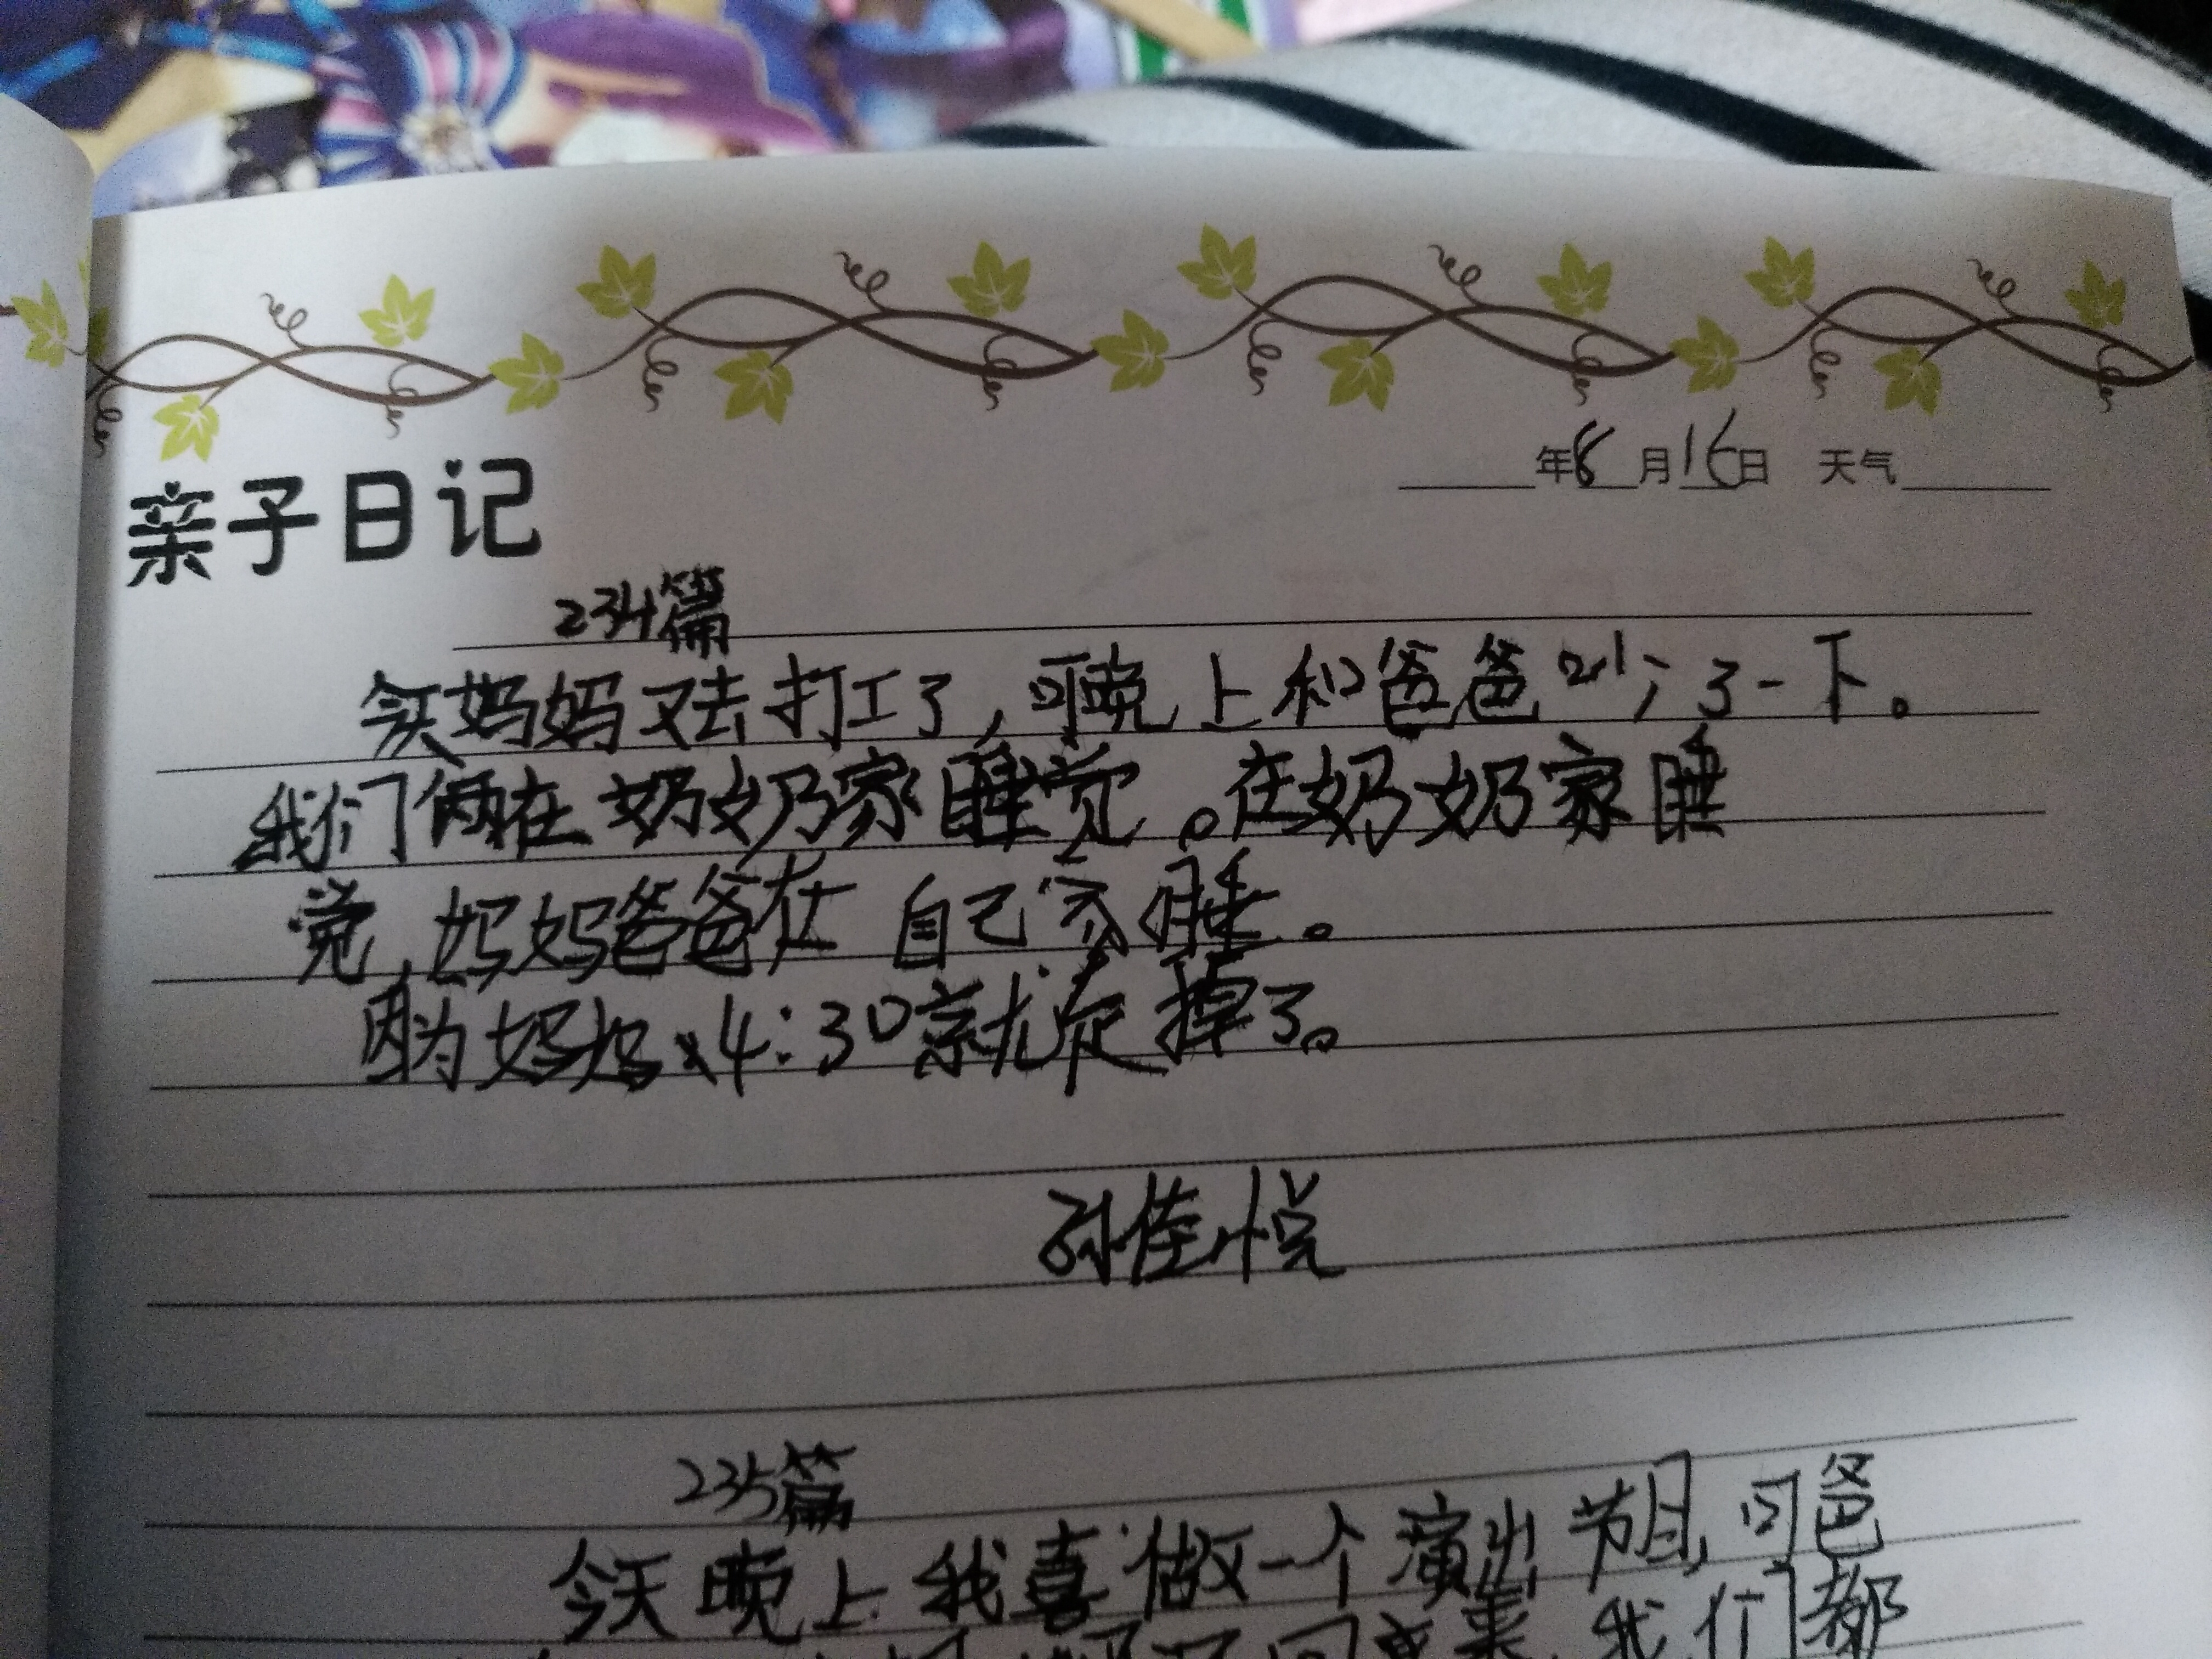 年8月16日 天气
亲子日记
234篇
今天妈妈又去打工了，可晚上和爸爸吵了一下。
我们俩在奶奶家睡觉。在奶奶家睡
觉，妈妈爸爸在自己家睡。
因为妈妈4:30就走掉了。
孙佳悦
235篇
今天晚上我喜做一个演出节目，可爸
我们都